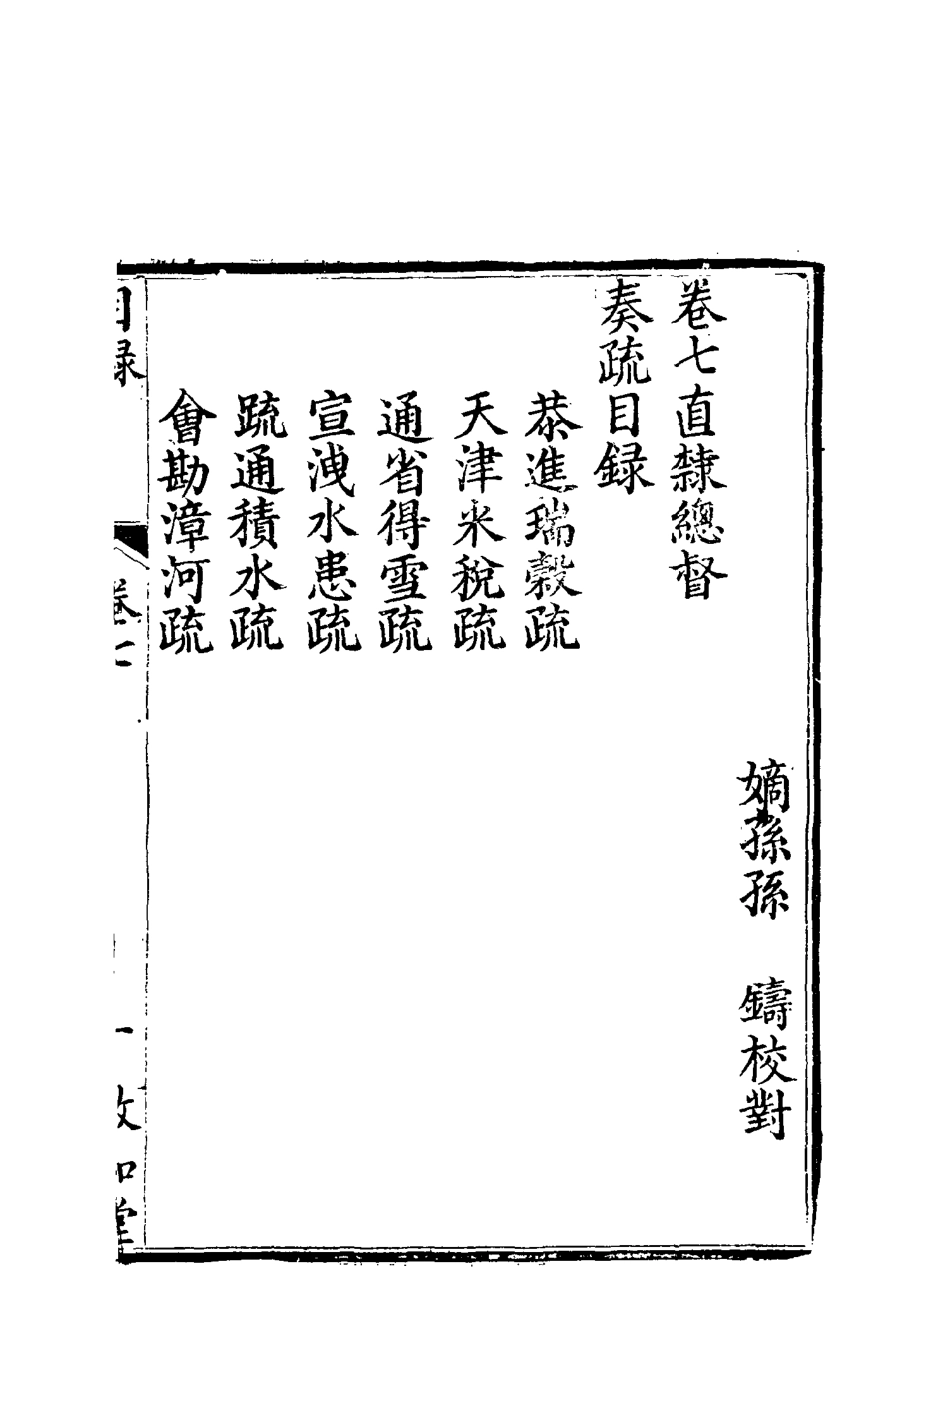 嫡孫孫　鑄校對
卷七直隸總督
奏疏目録
恭進瑞穀疏
天津米稅疏
通省得雪疏
宣洩水患疏
疏通積水疏
會勘漳河疏
目録
卷七
一
敦和堂